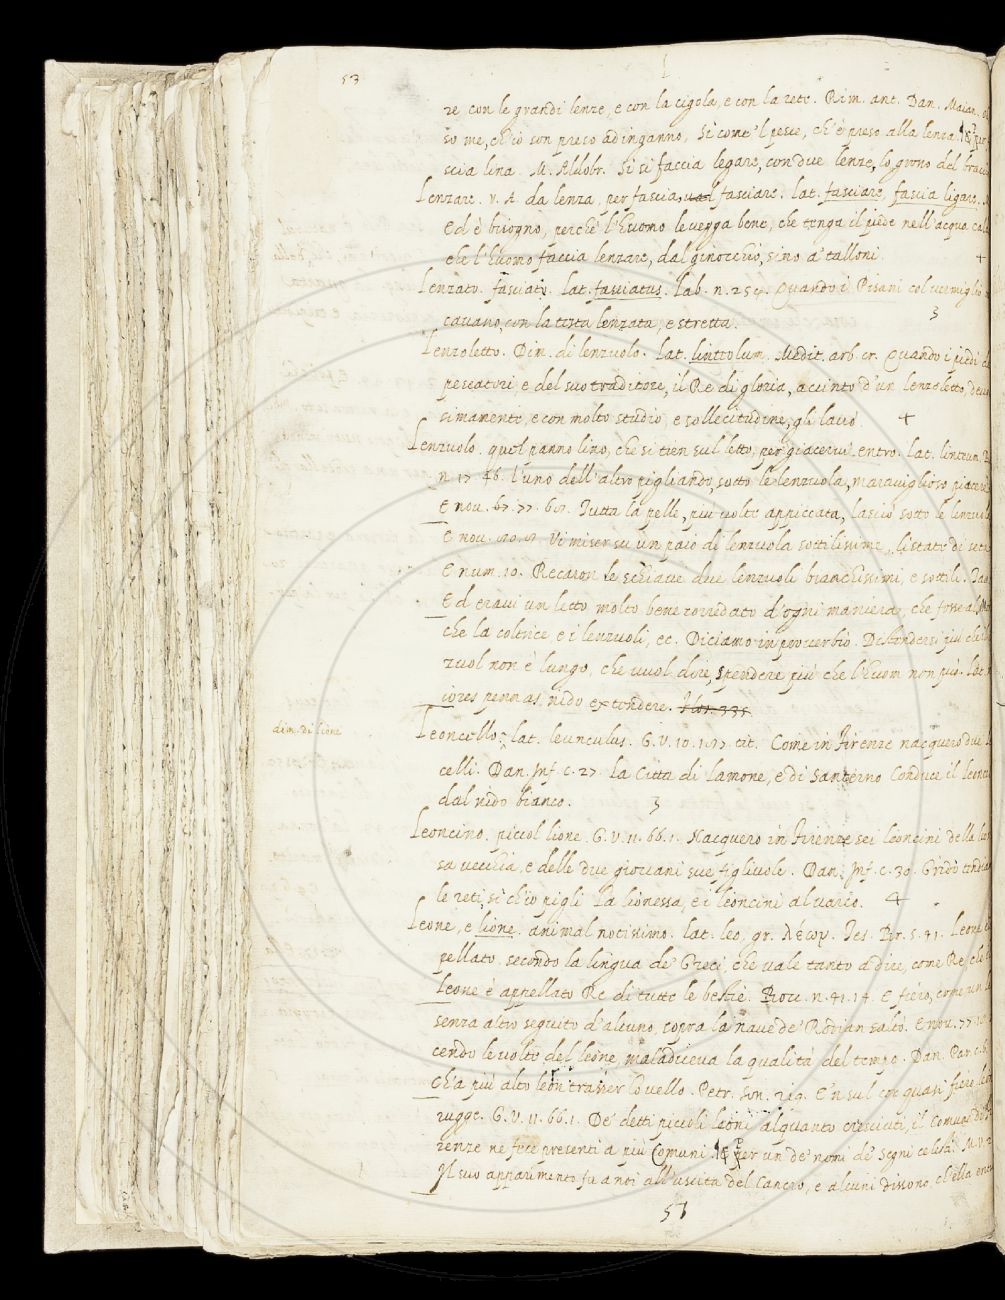 53
re con le grandi lenze, e con la cigola, e con la rete. Rim. ant. Dan. Maian.
so me, ch'io son preso ad inganno, Sì come 'l pesce, ch'è preso alla lenza. ¶ per
scia lina. M. Aldobr. Si si faccia legare, con due lenze, lo grosso del braccio
Lenzare. V. A. da lenza, per fascia, val fasciare. lat. fasciare, fascia ligare.
E d è bisogno, perchè l'huomo le vegga bene, che tenga il piede nell'acqua
che l'huomo faccia lenzare, dal ginocchio, sino a' talloni. +
Lenzato. fasciato. Lat. fasciatus. Lab. n. 254. Quando i Pisani col vermiglio
cavano, con la testa lenzata, e stretta. 3
Lenzoletto. Dim. di lenzuolo. Lat. linteolum. Medit. arb. cr. Quando i piedi
pescatori e del suo traditore, il Re di gloria, accinto d'un lenzoletto,
simamente, e con molto studio, e sollecitudine, gli lavò. 4
Lenzuolo. quel panno lino, che si tien sul letto, per giacervi entro. Lat. linteum.
n. 17. 46. l'uno dell'altro pigliando, sotto le lenzuola, maraviglioso piacere
E nov. 77. 61. Tutta la pelle, più volte appiccata, lasciò sotto le lenzuola
E nov. 80. 8. Vi miser su un paio di lenzuola sottilissime, listate di seta
E num. 10. Recaron le schiave due lenzuoli bianchissimi, e sottili.
E d eravi un letto molto bene corredato d'ogni maniera, che fosse al
che la coltrice e i lenzuoli, ec. Diciamo in proverbio. Distendersi più che 'l
zuol non è lungo, che vuol dire, spendere più che l'huom non può. lat.
iores pennas nido extendere. Flos. 335
dim. di lione
Leoncello. lat. leunculus. G. V. 10. 187. tit. Come in Firenze nacquero due
celli. Dan. Inf. c. 27. La Città di Lamone, e di Santerno Conduce il leoncel
dal nido bianco. 3
Leoncino. picciol lione. G. V. 11. 66. 1. Nacquero in Firenze sei leoncini della
sa vecchia, e delle due giovani sue figliuole. Dan. Inf. c. 30. Gridò tendiam
le reti, sì ch'io pigli La lionessa, e i leoncini al varco. 4
Leone, e lione. animal notissimo. lat. leo. gr. λέων. Tes. Br. 5. 41. Leone
pellato secondo la lingua de' Greci, che vale tanto a dire, come Re, che
Leone è appellato Re di tutte le bestie. Bocc. n. 41. 14. E fiero, come un
senza altro seguito d'alcuno, sopra la nave de' Rodian saltò. E nov. 77.
cendo le volte del leone, maladiceva la qualità del tempo. Dan. Par. c. 6.
Ch'a più alto leon trasser lo vello. Petr. Son. 219. E 'n sul cor quasi fiero leon
rugge. G. V. 11. 66. 1. De' detti piccioli leoni alquanto cresciuti, il Comune di
renze ne fece presenti a più Comuni. ¶ per un de' nomi de' Segni celesti. M. V. 2.
Il suo apparimento fu a noi all'uscita del Cancro, e alcuni dissono, ch'ella